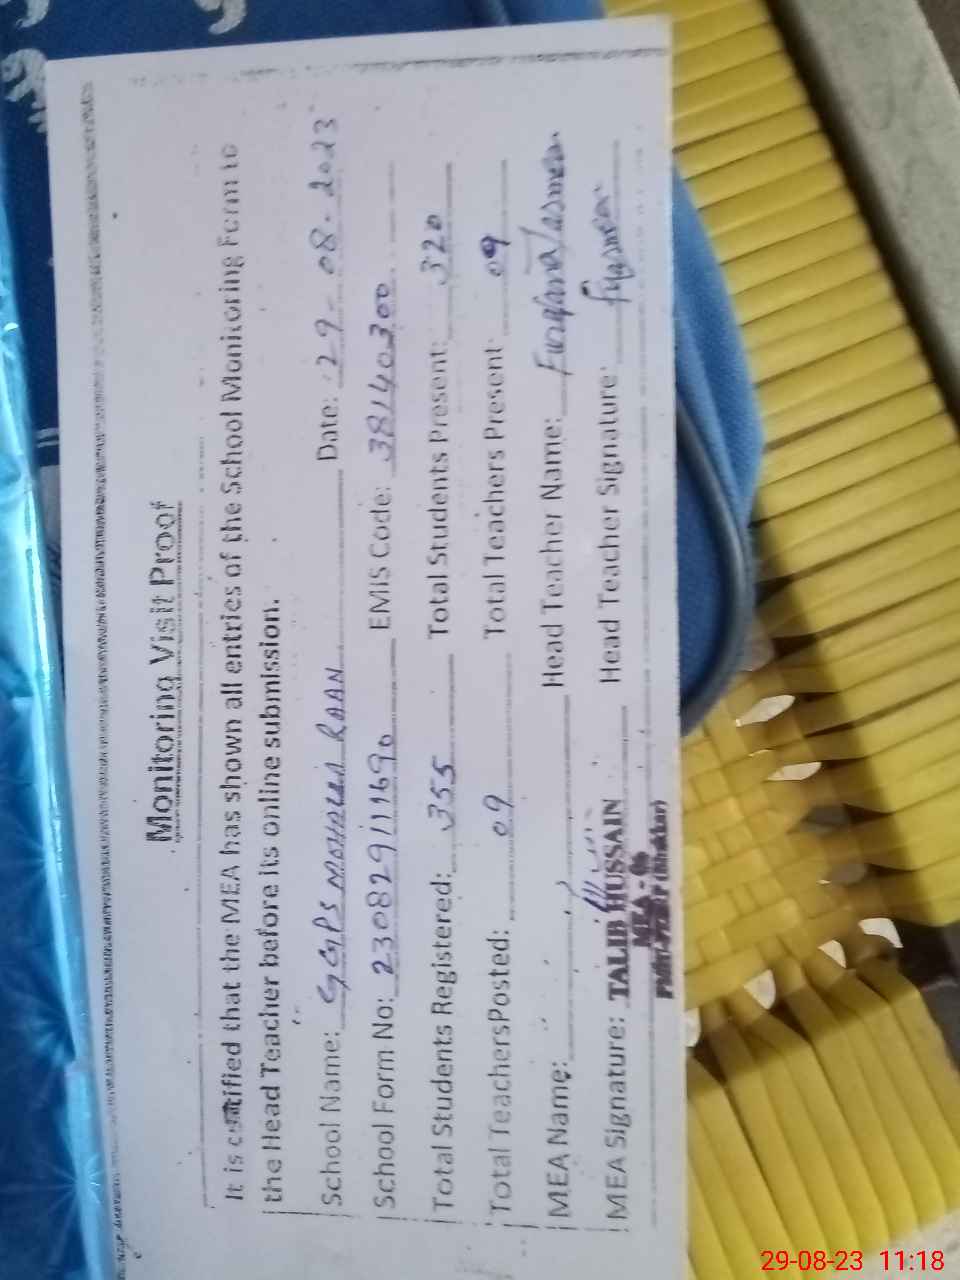 Monitoring Visit Proof
It is certified that the MEA has shown all entries of the School Monitoring Form to
the Head Teacher before its online submission.
School Name: GGPS MOHALLA RAAN Date: 29-08-2023
School Form No: 230829111690 EMIS Code: 38140300
Total Students Registered: 355 Total Students Present: 320
Total Teachers Posted: 09 Total Teachers Present: 09
MEA Name: Head Teacher Name: Farzana Yasmeen
MEA Signature: TALIB HUSSAIN Head Teacher Signature:
MEA - 06
29-08-23 11:18